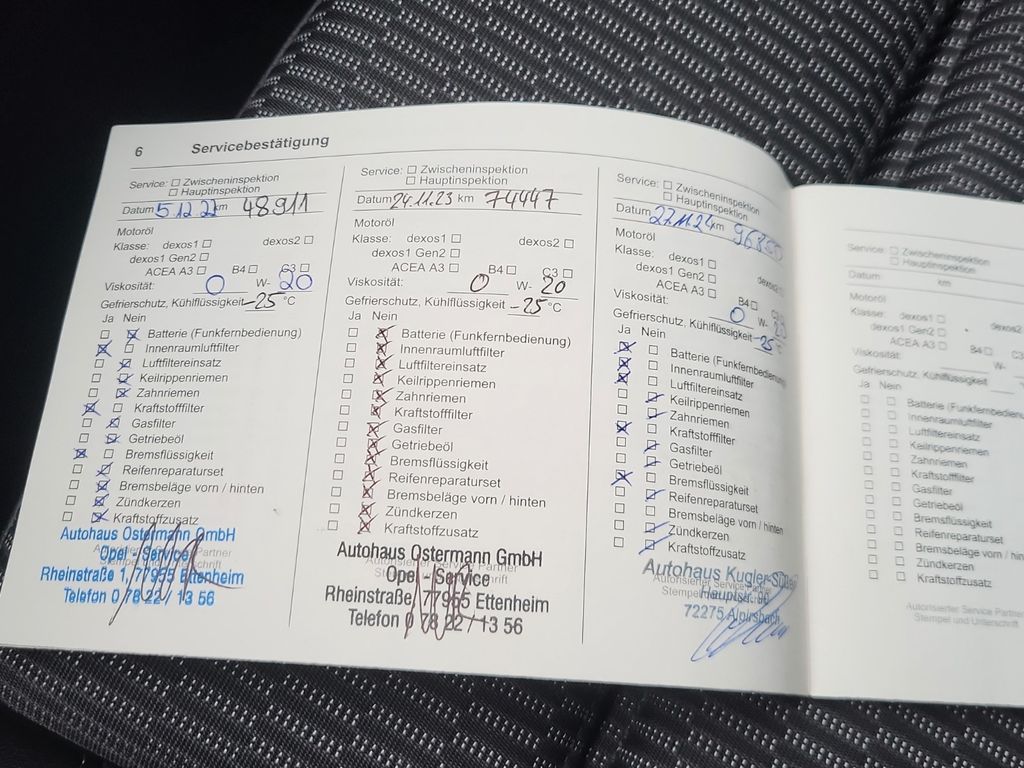 6 Servicebestätigung
Service: Zwischeninspektion
Hauptinspektion
Datum 5.12.22 km 48911
Motoröl
Klasse: dexos1 dexos2
dexos1 Gen2
ACEA A3 B4 C3
Viskosität: 0 W- 20
Gefrierschutz, Kühlflüssigkeit -25 °C
Ja Nein
Batterie (Funkfernbedienung)
Innenraumluftfilter
Luftfiltereinsatz
Keilrippenriemen
Zahnriemen
Kraftstofffilter
Gasfilter
Getriebeöl
Bremsflüssigkeit
Reifenreparaturset
Bremsbeläge vorn / hinten
Zündkerzen
Kraftstoffzusatz
Autohaus Ostermann GmbH
Opel - Service
Partner
Rheinstraße 1, 77955 Ettenheim
Telefon 0 78 22 / 13 56
Service: Zwischeninspektion
Hauptinspektion
Datum 24.11.23 km 74447
Motoröl
Klasse: dexos1 dexos2
dexos1 Gen2
ACEA A3 B4 C3
Viskosität: 0 W- 20
Gefrierschutz, Kühlflüssigkeit -25 °C
Ja Nein
Batterie (Funkfernbedienung)
Innenraumluftfilter
Luftfiltereinsatz
Keilrippenriemen
Zahnriemen
Kraftstofffilter
Gasfilter
Getriebeöl
Bremsflüssigkeit
Reifenreparaturset
Bremsbeläge vorn / hinten
Zündkerzen
Kraftstoffzusatz
Autohaus Ostermann GmbH
Opel - Service
Rheinstraße 77955 Ettenheim
Telefon 0 78 22 / 13 56
Service: Zwischeninspektion
Hauptinspektion
Datum 27.11.24 km
Motoröl
Klasse: dexos1
dexos1 Gen2
ACEA A3 B4
Viskosität: 0 W-
Gefrierschutz, Kühlflüssigkeit -25 °C
Ja Nein
Batterie (Funkfernbedienung)
Innenraumluftfilter
Luftfiltereinsatz
Keilrippenriemen
Zahnriemen
Kraftstofffilter
Gasfilter
Getriebeöl
Bremsflüssigkeit
Reifenreparaturset
Bremsbeläge vorn / hinten
Zündkerzen
Kraftstoffzusatz
Autohaus
Hauptstr. 96
72275 Alpirsbach
Service: Zwischeninspektion
Hauptinspektion
Datum: km
Motoröl
Klasse: dexos1 dexos2
dexos1 Gen2
ACEA A3 B4 C3
Viskosität: W-
Gefrierschutz, Kühlflüssigkeit
Ja Nein
Batterie (Funkfernbedienu
Innenraumluftfilter
Luftfiltereinsatz
Keilrippenriemen
Zahnriemen
Kraftstofffilter
Gasfilter
Getriebeöl
Bremsflüssigkeit
Reifenreparaturset
Bremsbeläge vorn / hin
Zündkerzen
Kraftstoffzusatz
Autorisierter Service Partner
Stempel und Unterschrift